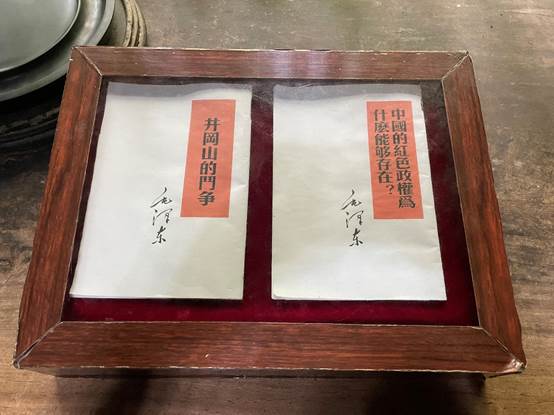 井岡山的鬥争
毛泽东
中國的紅色政權爲
什麼能够存在？
毛泽东